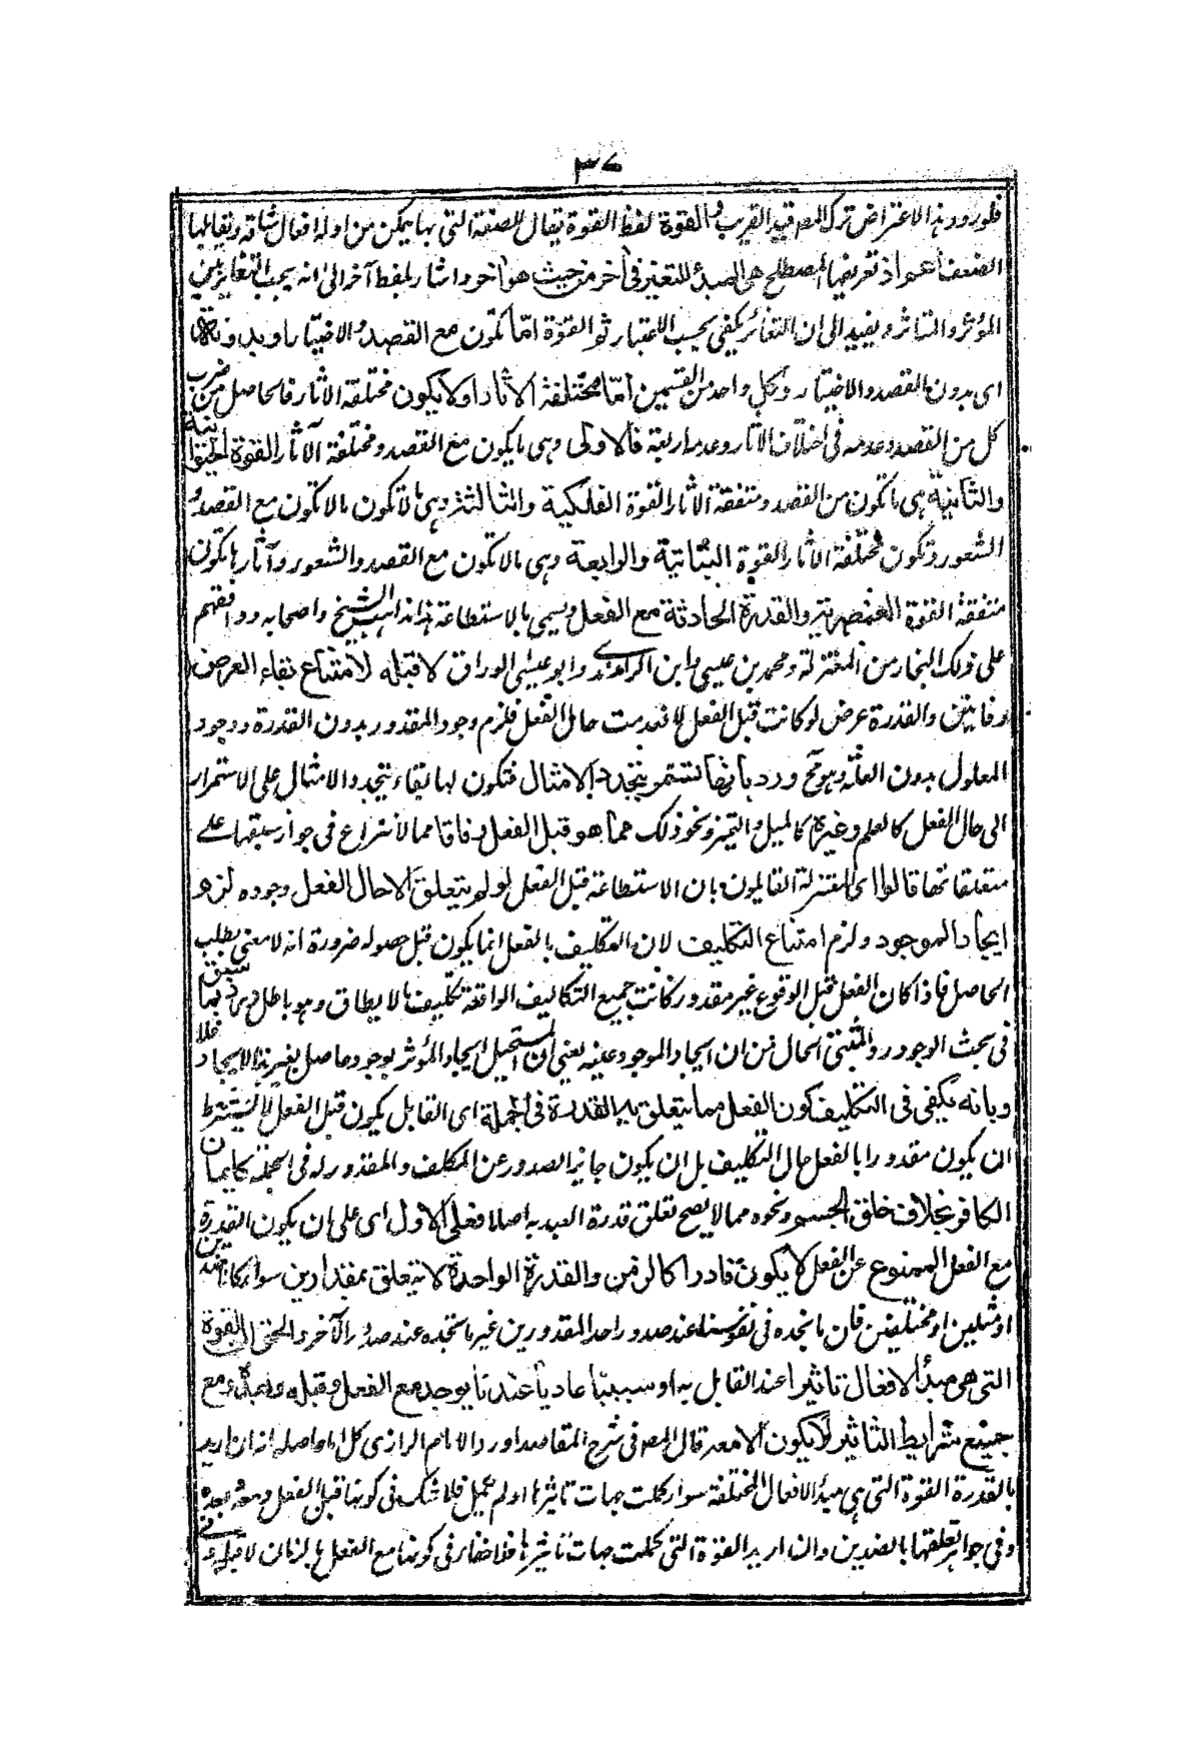 ٣٧
فلورود هذا الاعتراض ترك المصـ قيد القريب والقوة لفظ القوة يقال للصفة التى بها يمكن من اوله افعال شاقة ويقالها
الضعف اعم اذ تعريفها المصطلح هى المبدأ للتغير فى آخر من حيث هو آخر واشار بلفظ آخر الى انه يجب التغاير بين
المؤثر والمتاثر ويفيد الى ان التغائر يكفى بحسب الاعتبار ثم القوة امّا تكون مع القصد والاختيار او بدونهما
اى بدون القصد والاختيار وكل واحد من القسمين امّا مختلفة الآثار او لا يكون مختلفة الآثار فالحاصل من ضرب
كل من القصد وعدمه فى اختلاف الآثار وعدمها اربعة فالاولى وهى ما يكون مع القصد ومختلفة الآثار القوة الحيوانية
والثانية هى ما تكون من القصد ومتفقة الآثار القوة الفلكية والثالثة وهى ما لا تكون مع القصد و
الشعور وتكون مختلفة الآثار القوة النباتية والرابعة وهى ما لا تكون مع القصد والشعور وآثارها تكون
متفقة القوة العنصرية والقدرة الحادثة مع الفعل ويسمى بالاستطاعة هذا مذهب الشيخ واصحابه ووافقهم
على ذلك النجار من المعتزلة ومحمد بن عيسى وابن الراوندى وابو عيسى الوراق لا قبله لامتناع بقاء العرض
زمانين والقدرة عرض لو كانت قبل الفعل لانعدمت حال الفعل فلزم وجود المقدور بدون القدرة ووجود
المعلول بدون العلة وهو مح ورد بانها تستمر بتجدد الامثال فتكون لها بقاء بتجدد الامثال على الاستمرار
الى حال الفعل كالعلم وغيره كالميل والتميز ونحو ذلك مما هو قبل الفعل وفاقا مما لا نزاع فى جواز سبقها على
متعلقاتها قالوا اى المعتزلة القايلون بان الاستطاعة قبل الفعل لو لم يتعلق الا حال الفعل وجوده لزم
ايجاد الموجود ولزم امتناع التكليف لان التكليف بالفعل انما يكون قبل حصوله ضرورة انه لا معنى بطلب
الحاصل فاذا كان الفعل قبل الوقوع غير مقدور كانت جميع التكاليف الواقعة تكليف ما لا يطاق وهو باطل ورد بما سبق
فى بحث الوجود من ان ايجاد الموجود عينه يعنى ان المستحيل ايجاد المؤثر بوجود حاصل بغير هذا الايجاد فلا
وبانه يكفى فى التكليف كون الفعل مما يتعلق به القدرة فى الجملة اى القابل يكون قبل الفعل لا يشترط
ان يكون مقدورا بالفعل حال التكليف بل ان يكون جايز الصدور عن المكلف والمقدور له فى الجملة كايمان
الكافر بخلاف خلق الجسم ونحوه مما لا يصح تعلق قدرة العبد به اصلا فعلى الاول اى على ان يكون القدرة
مع الفعل الممنوع عن الفعل لا يكون قادرا كالزمن والقدرة الواحدة لا يتعلق بمقدارين سواء كانا ضدين
او مثلين او مختلفين فان ما نجده فى نفوسنا عند صدور احد المقدورين غير ما نجده عند صدور الآخر والحق ان القوة
التى هى مبدأ الافعال تاثيرا عند القابل به او سببا عاديا عندنا يوجد مع الفعل وقبله وبعده ومع
جميع شرايط التاثير لا يكون الا معه قال المصـ فى شرح المقاصد اورد الامام الرازى كلاما حاصله انه ان اريد
بالقدرة القوة التى هى مبدأ الافعال المختلفة سواء كملت جهات تاثيرها او لم تكمل فلا شك فى كونها قبل الفعل ومعه وبعده
وفى جواز تعلقها بالضدين وان اريد القوة التى كملت جهات تاثيرها فلا خفاء فى كونها مع الفعل بالزمان لا قبله